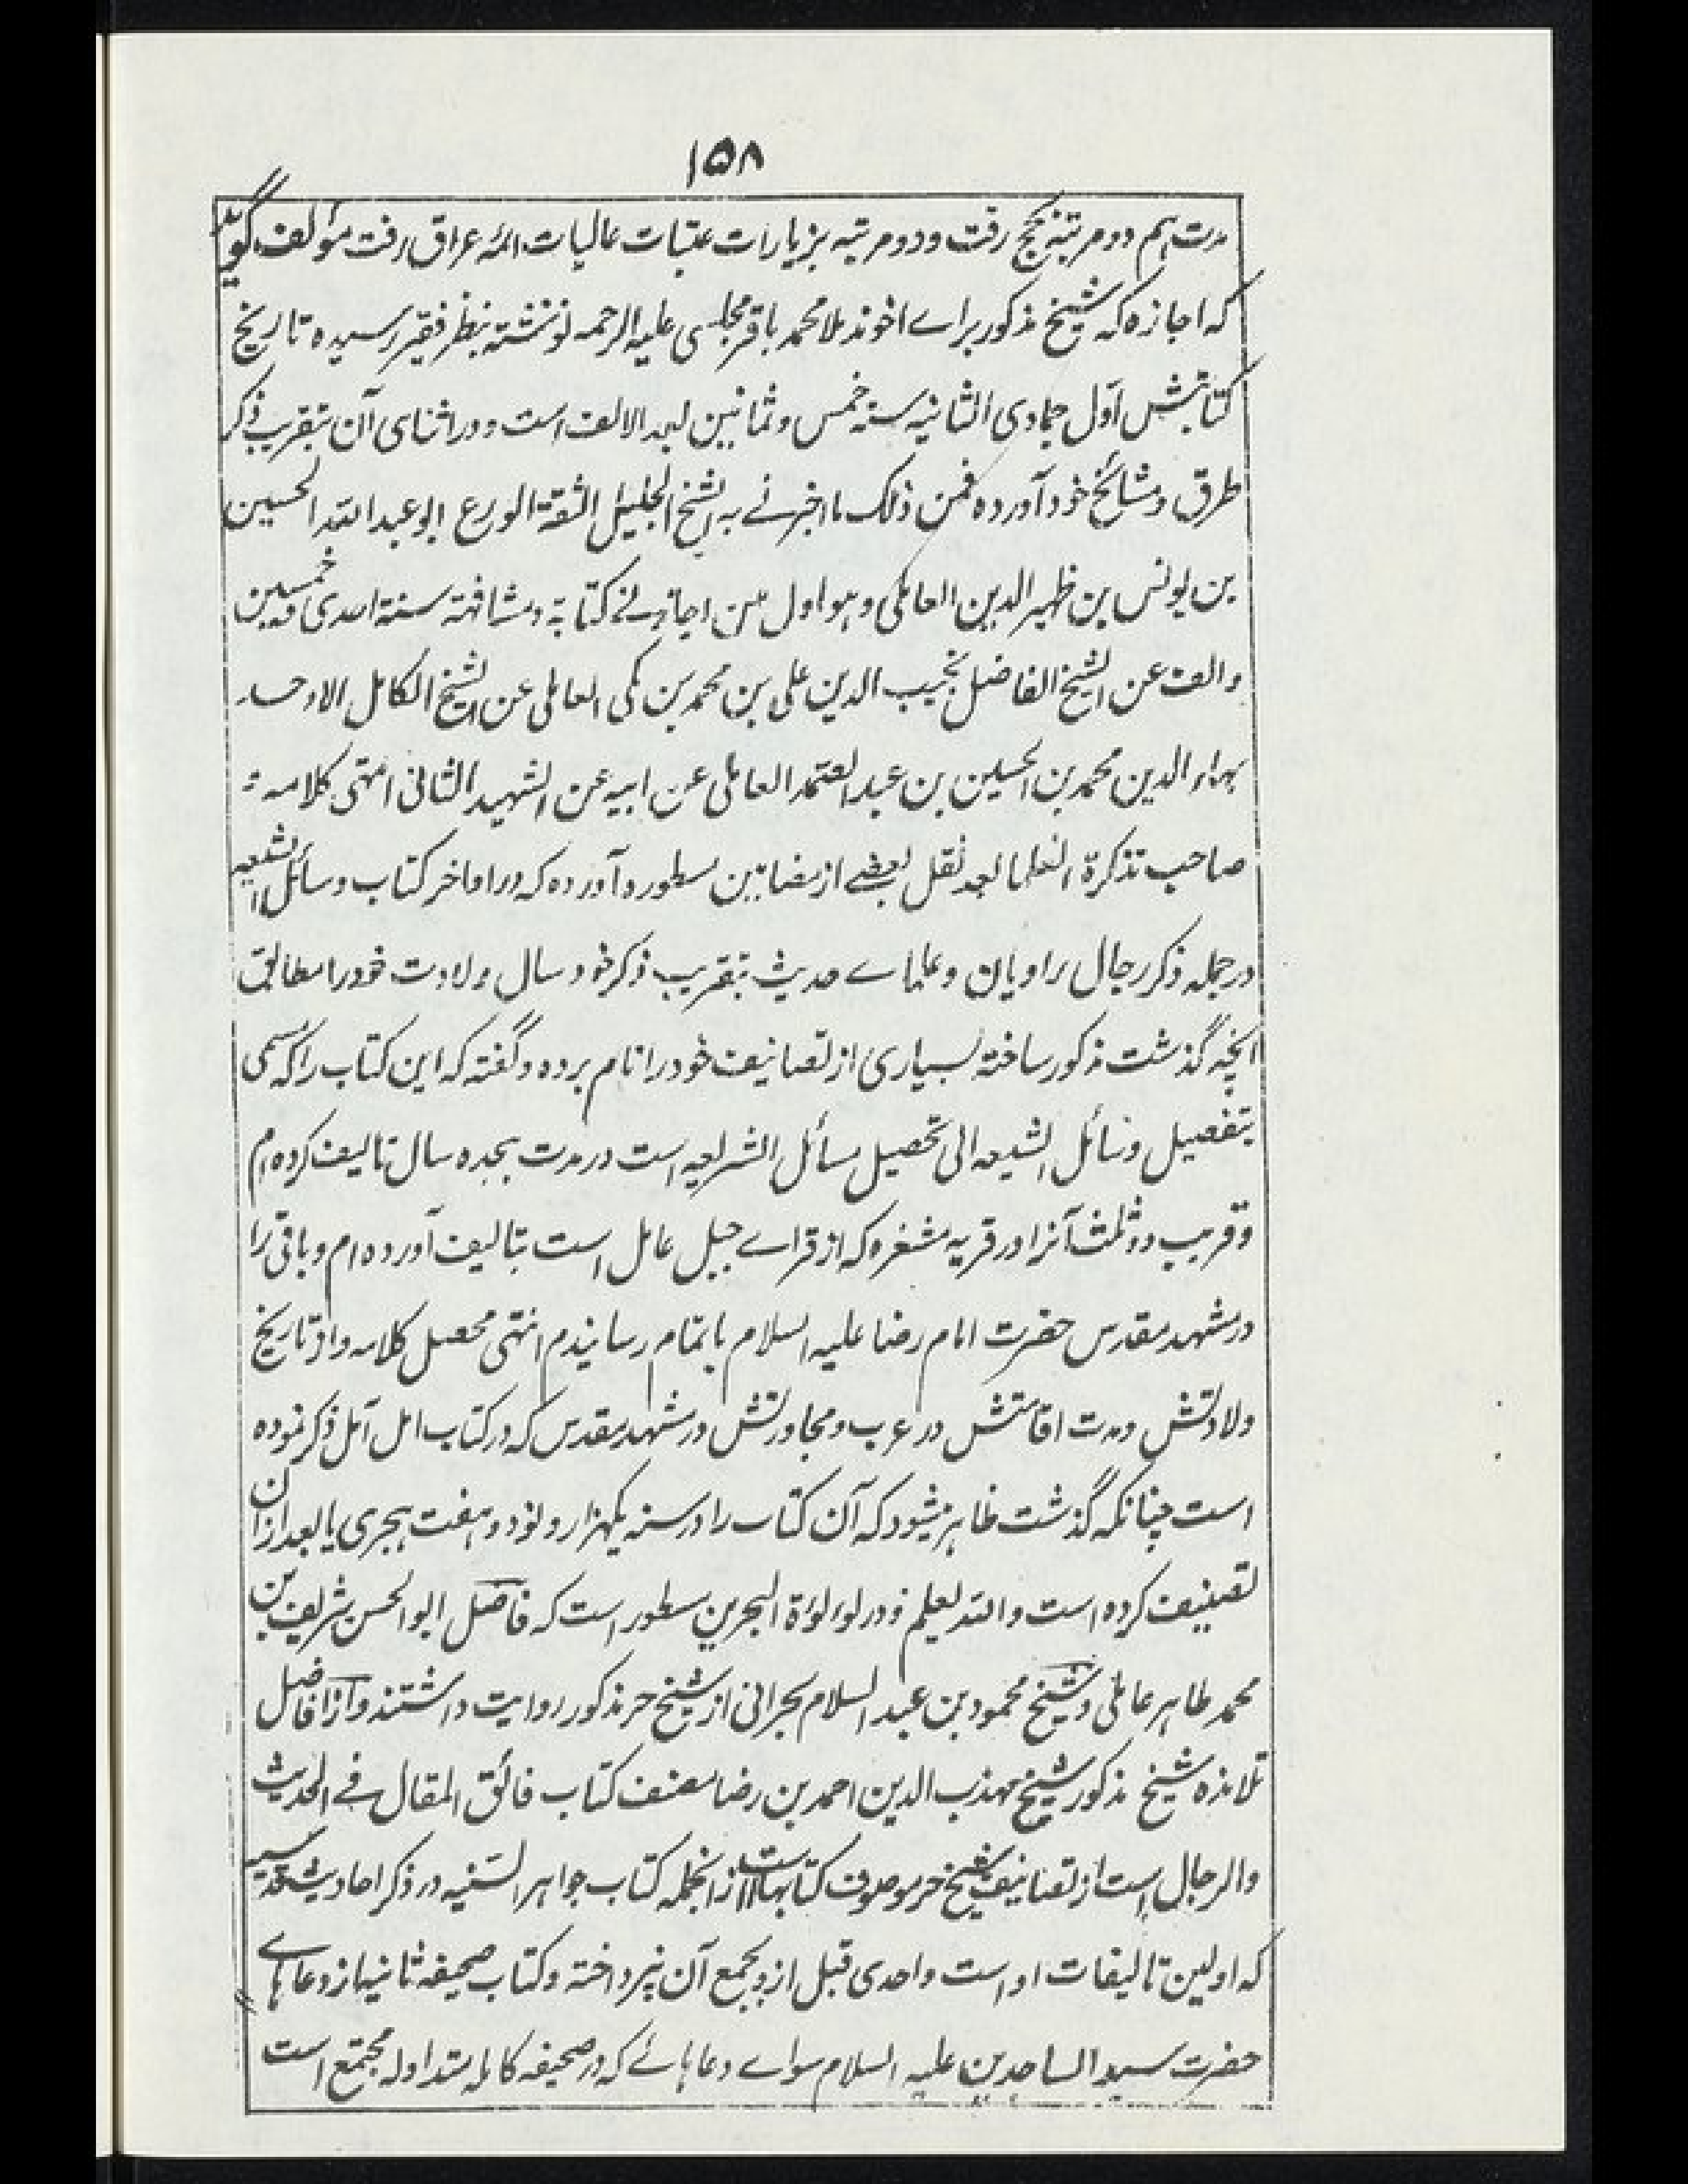 ١٥٨
مدت ہم دو مرتبہ بحج رفت و دو مرتبہ بزیارات عتبات عالیات ائمہ عراق رفت مؤلف گوید
کہ اجازہ کہ شیخ مذکور براے اخوند ملا محمد باقر مجلسی علیہ الرحمہ نوشتہ بنظر فقیر رسیدہ تاریخ
کتابتش اول جمادی الثانیہ سنہ خمس و ثمانین بعد الالف است و در اثنای آن بتقریب ذکر
طرق و مشائخ خود آوردہ فمن ذلک ما اخبرنے بہ الشیخ الجلیل الثقة الورع ابو عبد اللہ الحسین
بن یونس بن ظہیر الدین العاملی و ہو اول من اجازنے کتابة و مشافہة سنة احدی و خمسین
و الف عن الشیخ الفاضل نجیب الدین علی بن محمد بن مکی العاملی عن الشیخ الکامل الاوحد
بہاء الدین محمد بن الحسین بن عبد الصمد العاملی عن ابیہ عن الشہید الثانی انتہی کلامہ
صاحب تذکرة العلما بعد نقل بعضے از مضامین مسطورہ آوردہ کہ در اواخر کتاب وسائل الشیعہ
در جملہ ذکر رجال راویان و علماے حدیث بتقریب ذکر خود سال ولادت خود را مطابق
انچہ گذشت مذکور ساختہ بسیاری از تصانیف خود را نام بردہ و گفتہ کہ این کتاب را کہ مسمی
بتفصیل وسائل الشیعہ الی تحصیل مسائل الشریعہ است در مدت ہجدہ سال تالیف کردہ ام
و قریب دو ثلث آنرا در قریہ مشغرہ کہ از قراے جبل عامل است بتالیف آوردہ ام و باقی را
در مشہد مقدس حضرت امام رضا علیہ السلام باتمام رسانیدم انتہی محصل کلامہ و از تاریخ
ولادتش و مدت اقامتش در عرب و مجاورتش در مشہد مقدس کہ در کتاب امل آمل ذکر نمودہ
است چنانکہ گذشت ظاہر میشود کہ آن کتاب را در سنہ یکہزار و نود و ہفت ہجری یا بعد از ان
تصنیف کردہ است و اللہ یعلم و در لولوٴة البحرین مسطور است کہ فاضل ابو الحسن شریف بن
محمد طاہر عاملی و شیخ محمود بن عبد السلام بحرانی از شیخ حر مذکور روایت داشتند و از افاضل
تلامذہ شیخ مذکور شیخ مہذب الدین احمد بن رضا مصنف کتاب فائق المقال فے الحدیث
و الرجال است از تصانیف شیخ حر موصوف کتابہاست از انجملہ کتاب جواہر السنیہ در ذکر احادیث قدسیہ
کہ اولین تالیفات او است و احدی قبل از و بجمع آن نپرداختہ و کتاب صحیفہ ثانیہ از دعاہاے
حضرت سید الساجدین علیہ السلام سواے دعاہائے کہ در صحیفہ کاملہ متداولہ مجتمع است